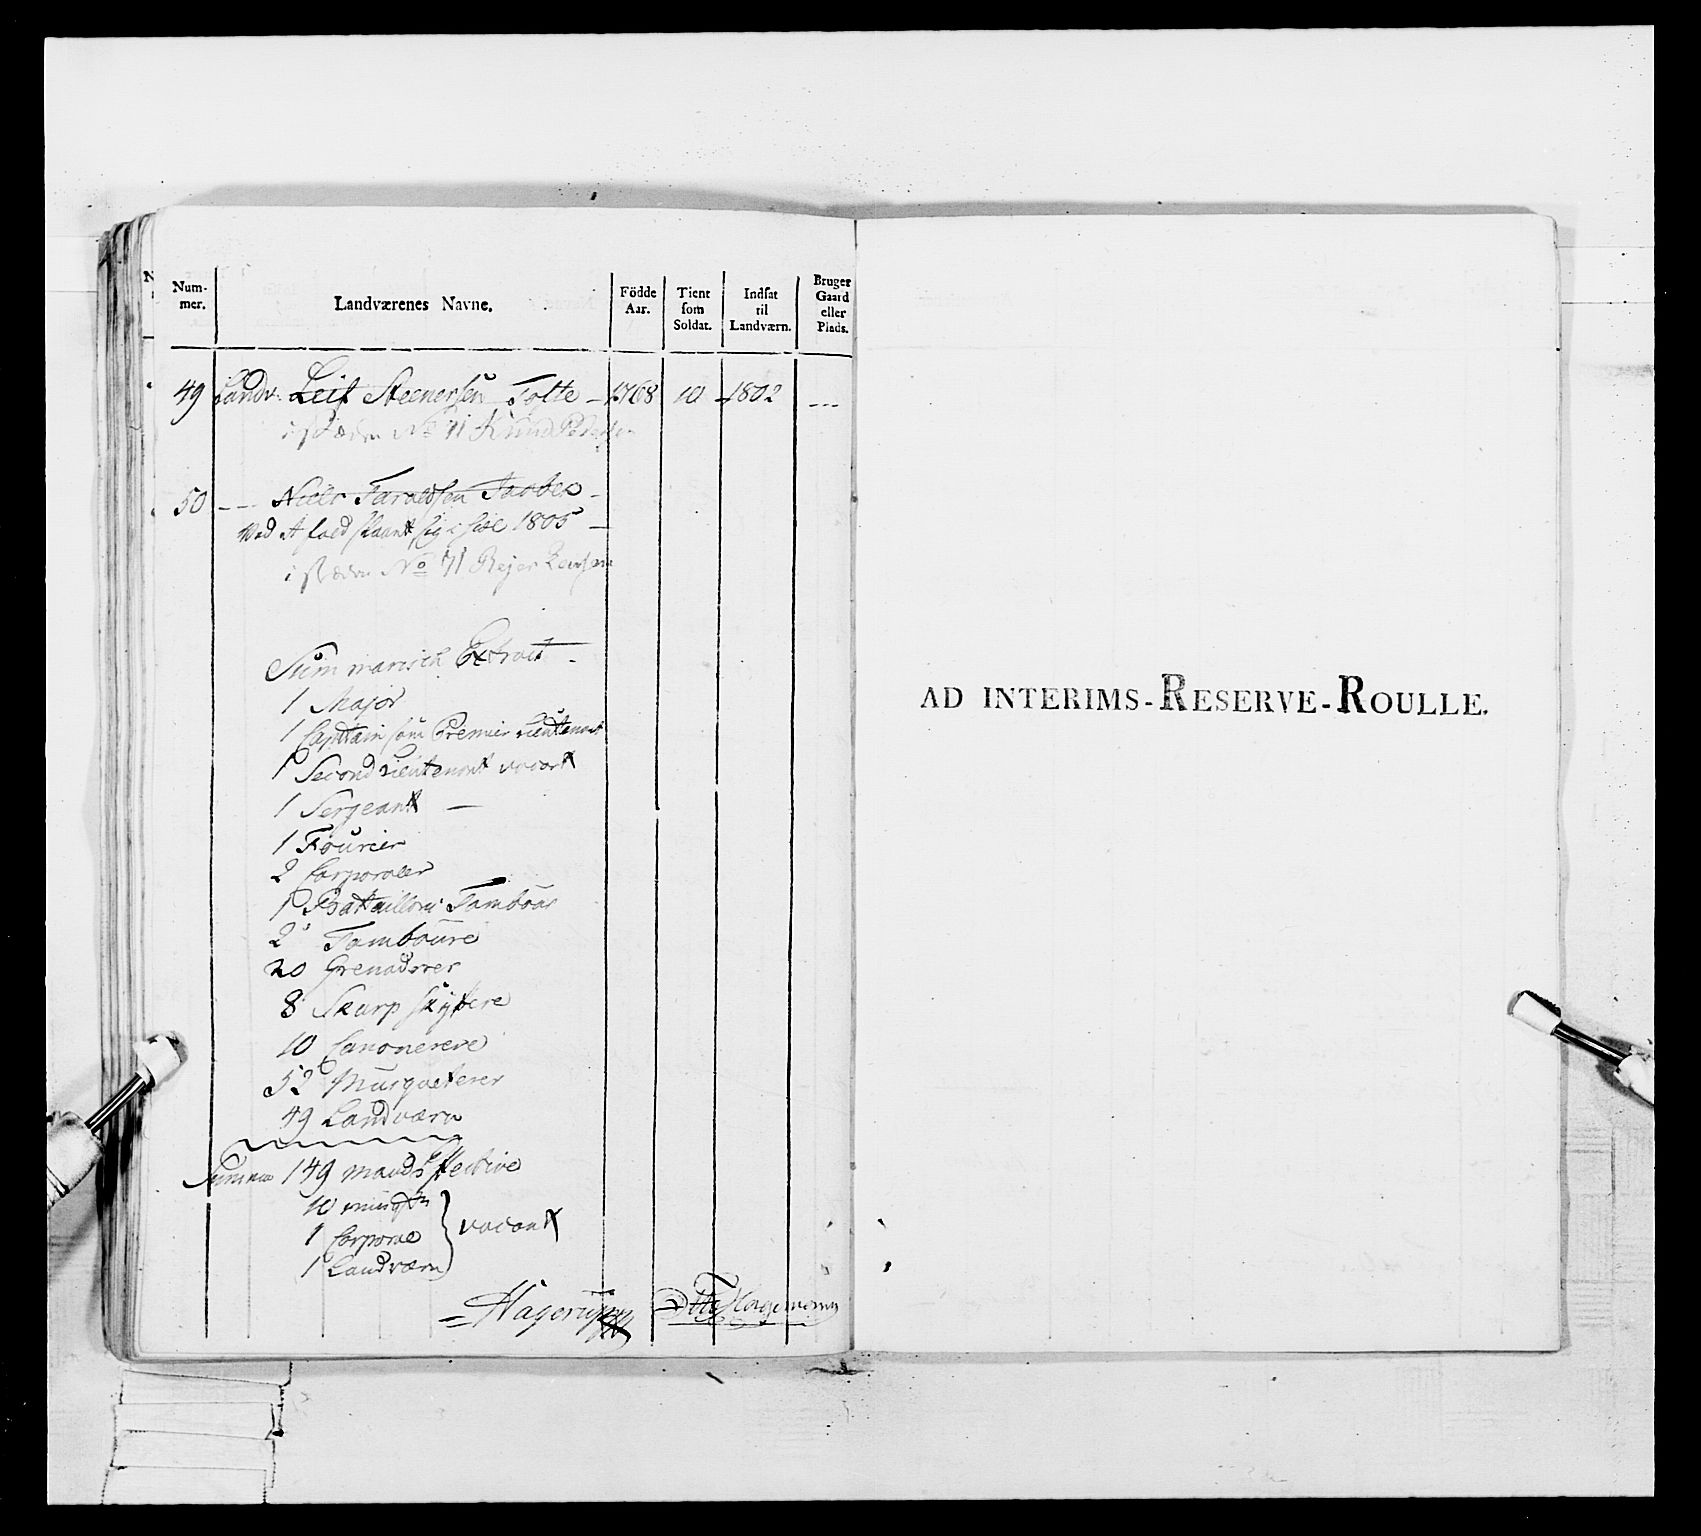 Num-
mer.
Landværenes Navne.
Födde
Aar.
Tient
som
Soldat.
Indsat
til
Landværn.
Bruger
Gaard
eller
Plads.
49 Landv. Leif Steenersen Tofte - 1768 10 - 1802 ---
i stæden No 71 Knud Pedersen
50 -- Niels Faraldsen -
i stæden No 71 Rejer
Summarisk Extract -
1 Major
1 Capitain som Premier Lieutenant
1 Second Lieutenant vacant
1 Sergeant -
1 Fourier
2 Corporaler
1 Battaillons Tambour
2 Tamboure
20 Grenaderer
8 Skarpskyttere
10 Canonerere
52 Musqueterer
49 Landværn
Summa 149 mands effective
10 musqtr
1 Corporal
vacant
1 Landværn
Hagerup
AD INTERIMS-RESERVE-ROULLE.